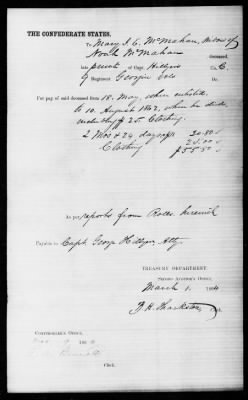 THE CONFEDERATE STATES,
To Mary J. C. McMahan, Widow of
Noah McMahan
late private of Capt. Hillyer Co. C.
9 Regiment Georgia Vols Dr.
For pay of said deceased from 18. May, when enlistd.
to 10. August 1862, when he died.
25. Clothing
2 Mos & 24 days
Clothing 25.00
As per reports from Rolls. herewith
Payable to Capt. George Hillyer, Atty.
TREASURY DEPARTMENT,
SECOND AUDITOR'S OFFICE,
March 1. 1864
Clerk.
COMPTROLLER'S OFFICE,
9 1864
Clerk.